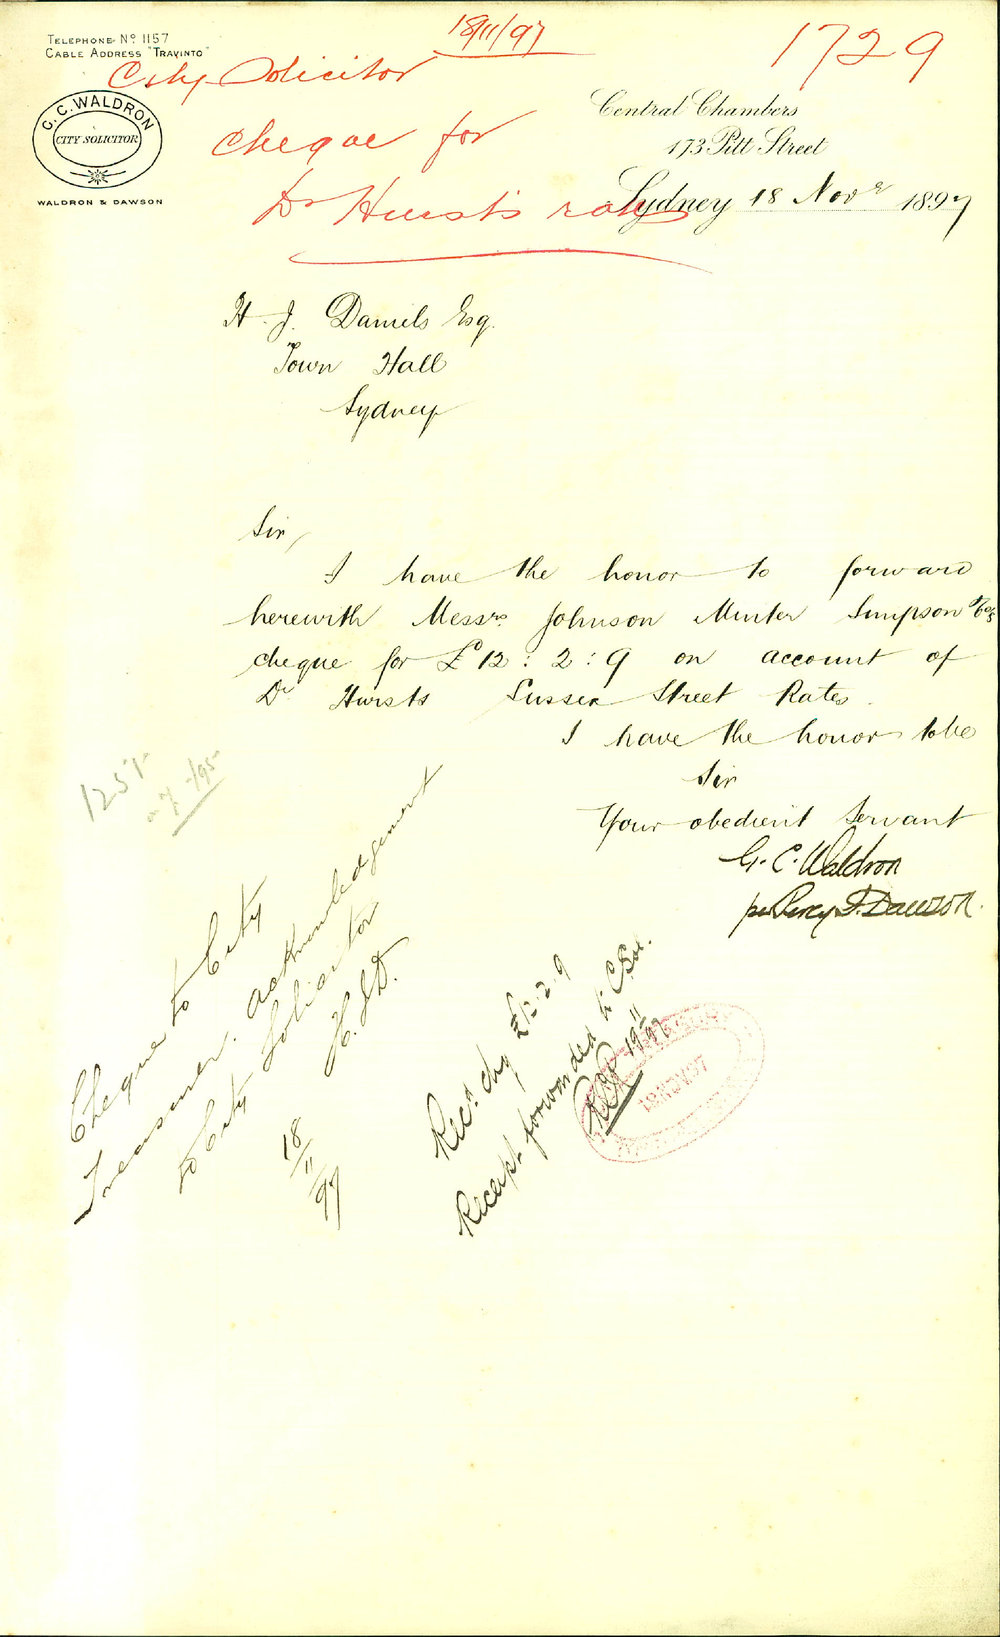 TELEPHONE No 1157
CABLE ADDRESS "TRAVINTO"
18/11/97
1729
City Solicitor
G.C. WALDRON
CITY SOLICITOR
WALDRON & DAWSON
Cheque for
Dr Hursts rates
Central Chambers
173 Pitt Street
Sydney 18 Novr 1897
H. J. Daniels Esq.
Town Hall
Sydney
Sir,
I have the honor to forward
herewith Messrs Johnson Minter Simpson & Cos
cheque for £12:2:9 on account of
Dr Hursts Sussex Street Rates.
I have the honor to be
Sir
Your obedient Servant
G. C. Waldron
per Percy S. Dawson.
1251
/95
Cheque to City
Treasurer. acknowledgement
to City Solicitor
H.J.D.
18/11/97
Recd chq £12.2.9
Receipt forwarded to C. Sol.
19/11/97
18 NOV 97